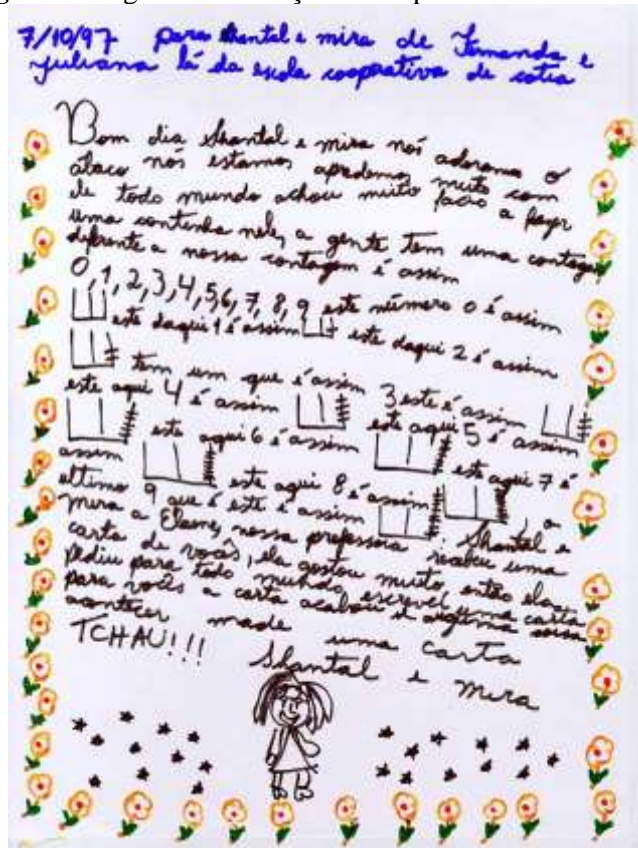 7/10/97 para Shantal e mira de Fernanda e
juliana lá da escola cooperativa de cotia
Bom dia Shantal e mira nós adoramos o
ábaco nós estamos aprdemos muito com
ele todo mundo achou muito facio a fazer
uma continha nele, a gente tem uma contagem
diferente a nossa contagem é assim
0,1,2,3,4,5,6,7,8,9 este número 0 é assim
este daqui 1 é assim este daqui 2 é assim
tem um que é assim 3 este é assim
este aqui 4 é assim este aqui 5 é assim
este aqui 6 é assim este aqui 7 é
assim este aqui 8 é assim o
ultimo 9 que é este é assim Shantal e
mira a Elaine, nossa professora recebeu uma
carta de vocês, ela gostou muito então ela
pediu para todo mundo escrevel uma carta
para vocês a carta acabou si alguma coisa
acontecer made uma carta
TCHAU!!! Shantal e Mira